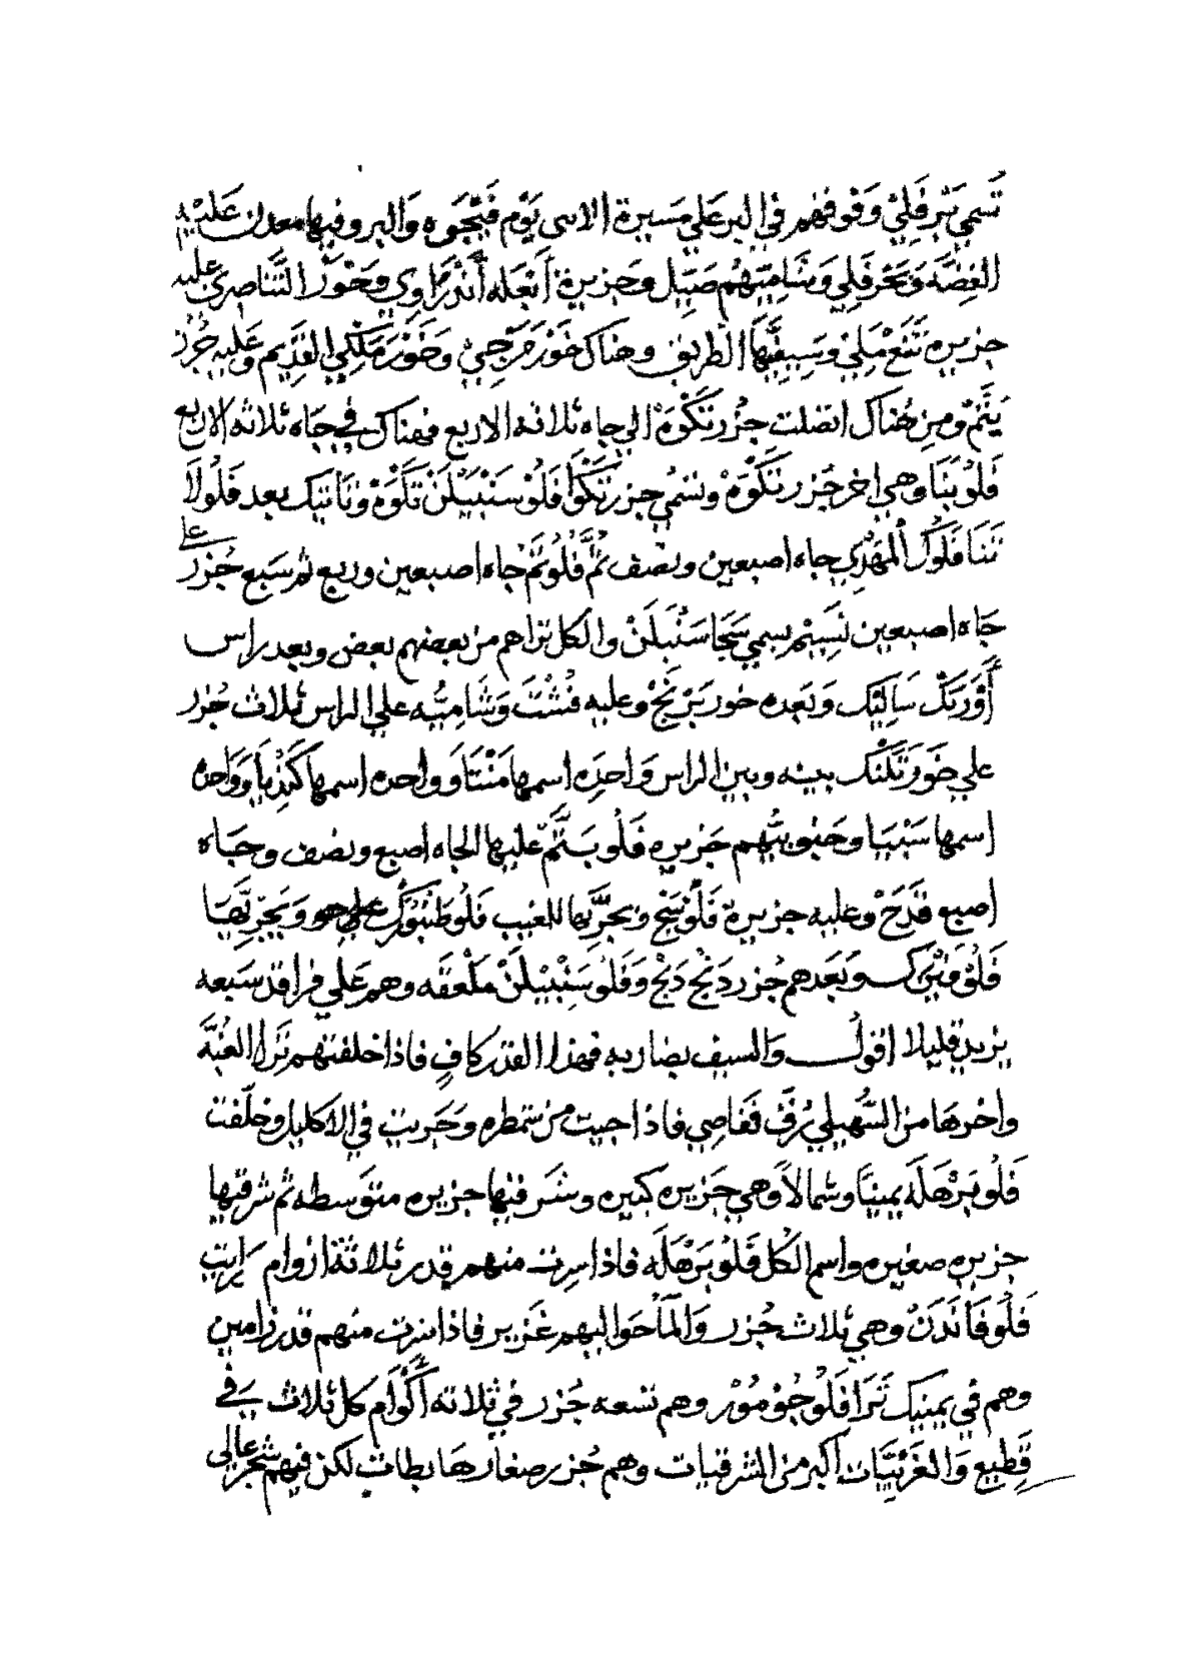 تسمي تبر فلي وفوقهم في البر علي مسيرة الاسى يوم فيجوه والبر وفيها معدن عليه
الفضه وبحر فلي وشاميتهم صبيل وجزيرة انعله اندراوي وخور التناصري عليه
جزيره تنع ملي وسيفيها الطريق وهناك خور مرجي وخور ملكي القديم وعليه جزر
يثم ومن هناك اتصلت جزر تكوه الي جاه ثلاثة الاربع فهناك في جاه ثلاثه الا ربع
فلو بنا وهي اخر جزر تكوه وتسمي جزر تكوا فلو سنبيلن تكوه وتاتيك بعد فلو لا
ننا فلو المهدي جاه اصبعين ونصف ثم فلو تم جاه اصبعين وربع ثم سبع جزر علي
جاه اصبعين نسيم يسمي سجا سنبلن والكل تراهم من بعضهم بعض وبعد راس
اورنك ساليك وبعده خور برنج وعليه فشت وشاميه علي الراس ثلاث جزر
علي خور تلنك بينه وبين الراس واحده اسمها منتا وواحده اسمها كذبا وواحده
اسمها سنبيا وجنوبيهم جزيره فلو بتم عليها الجاه اصبع ونصف وجاه
اصبع قدح وعليه جزيرة فلو سنج وبحريها للغيب فلو طنبورك علي وبحريها
فلو فينك وبعدهم جزر دنج دنج وفلو سنبيلن ملعقه وهم علي فراقد سبعه
يزيد قليلا اقول والسيف بضاربه فهذا القدر كاف فاذا خلفتهم ترا العبه
واخرها من السهيلي برق فعاصي فاذا جيت من شمطره وجريت في الاكليل وخلفت
فلو برهله يمينا وشمالا وهي جزيره كبيره وشرقيها جزيره متوسطه ثم شرقيها
جزيره صغيره واسم الكل فلو برهله فاذا سرت منهم قدر ثلاثة ازوام رايت
فلو فاندن وهي ثلاث جزر والماحواليهم غزير فاذا سرت منهم قدر زامين
وهم في يمينك ترا فلو جو مور وهم تسعه جزر في ثلاثه اكوام كل ثلاث في
قطيع والغربيات اكبر من الشرقيات وهم جزر صغارها بطات لكن فيهم شجر عالي